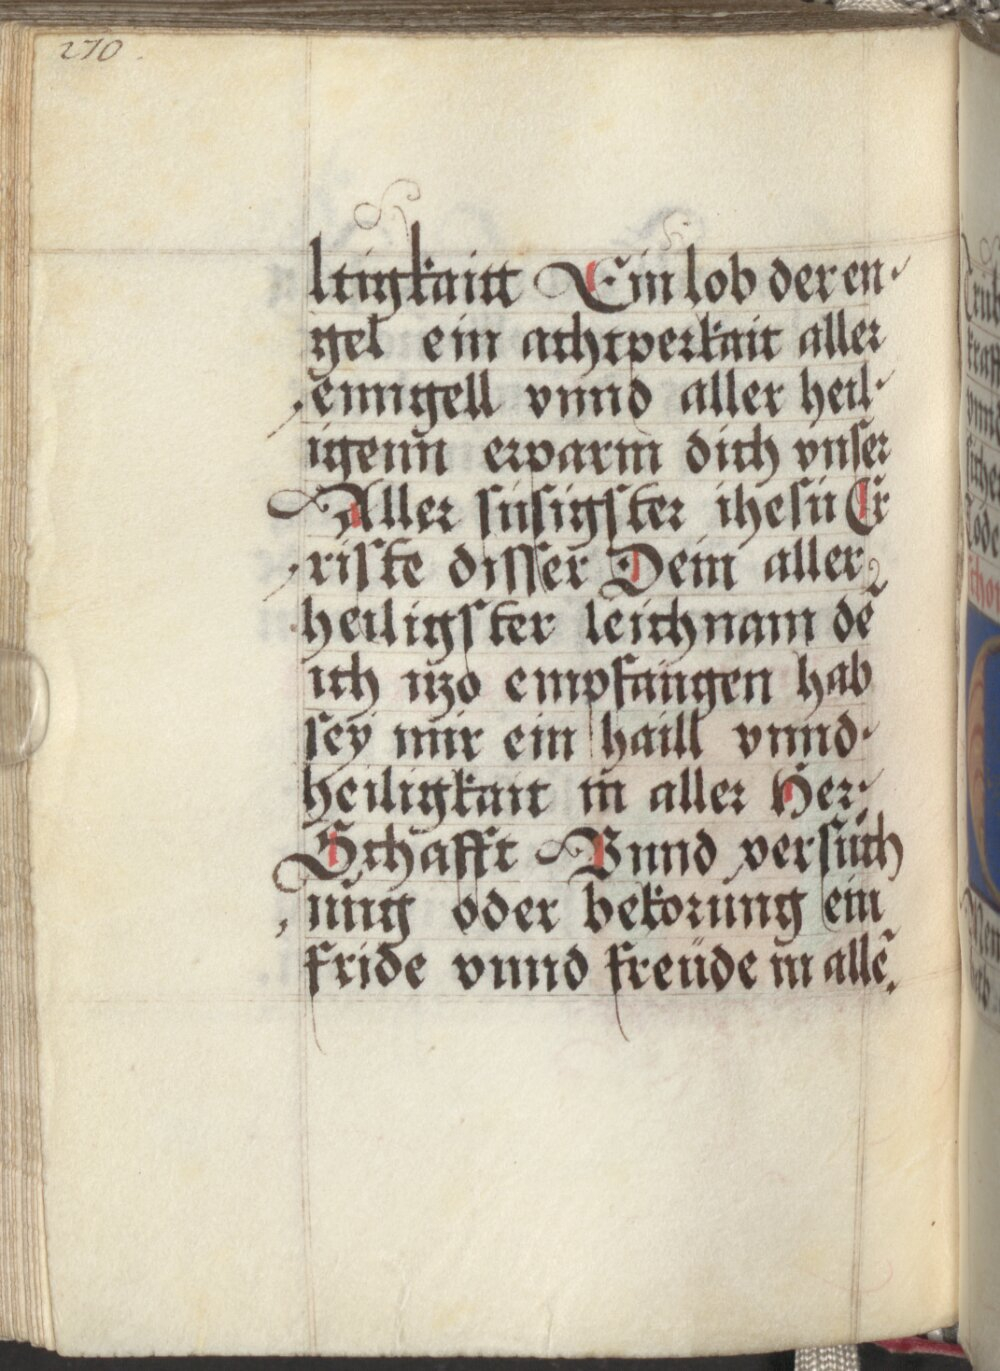 270.
ltigkaitt Ein lob der en·
gel ein achtperkait aller
enngell vnnd aller heil·
igenn erparm dich vnser
Aller süsigster ihesü Cr
riste disser Dein aller
heiligster leichnam dē
ich izo empfangen hab
sey mir ein haill vnnd·
heiligkait in aller Her·
Schafft Vnnd versüch
nüng oder bekorüng ein
fride vnnd freüde in allē.